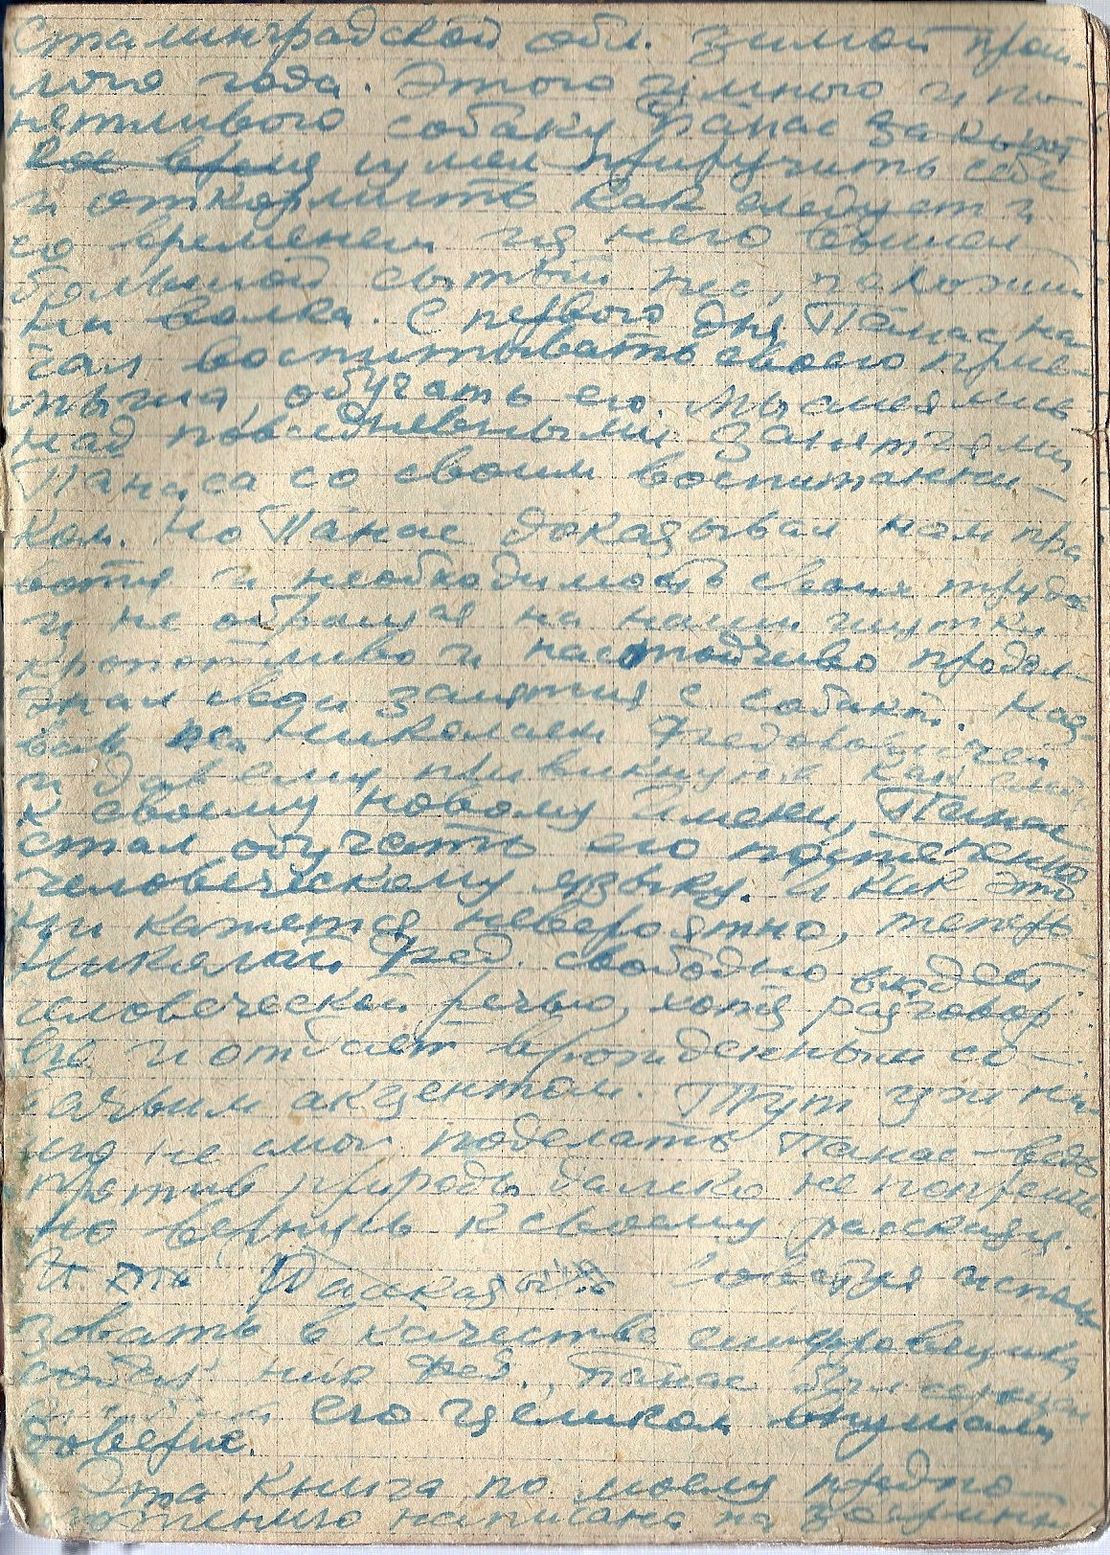 Сталинградской обл. зимой прош-
лого года. Этого умного и по-
нятливого собаку Панас за корот
кое время сумел приручить себе
и откормить как следует и
со временем из него вышел
большой сытый пес, похожий
на волка. С первого дня Панас на-
чал воспитывать своего прие-
мыша, обучать его. Мы смеялись
над повседневными занятиями
Панаса со своим воспитанни-
ком. Но Панас доказывал нам
и необходимость своих трудов
и не обращая на наши шутки
кропотливо и настойчиво продол-
жал свои занятия с собакой. Наз-
вав его Николаем Федоровичем
и дав ему привикнуть как
к своему новому имени, Панас
стал обучать его постепенно
человеческому языку. И как это
ни кажется невероятно, теперь
Николай Фед. свободно владеет
человеческой речью, хотя разговор
его и отдает врожденным со-
бачьим акцентом. Тут уж ни-
чего не смог поделать Панас – ведь
против природы далеко не попрешь
Но вернусь к своему рассказу.
И Рассказы исполь
зовать в качестве
Ник Фед., Панас был
его целиком внушали
доверие.
Эта книга по моему предпо
написана на